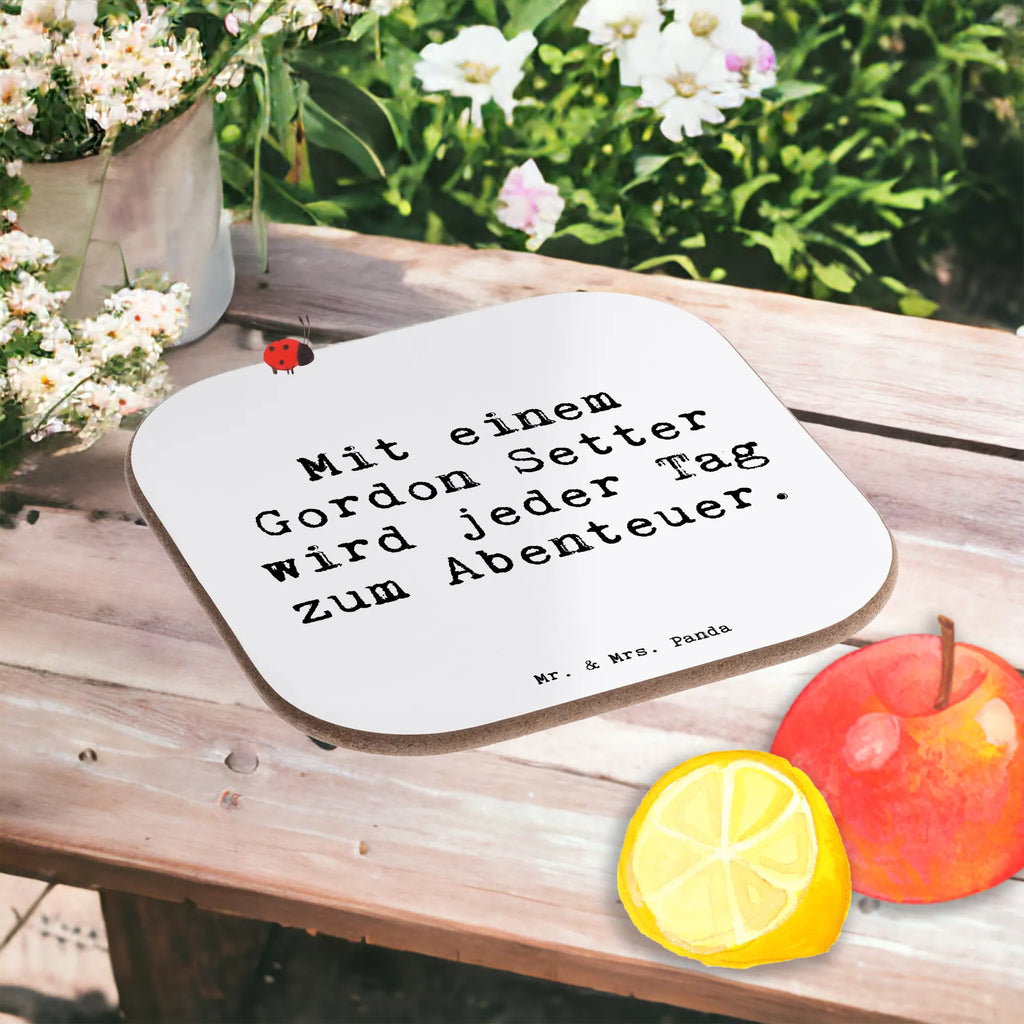 Mit einem
Gordon Setter
wird jeder Tag
zum Abenteuer.
Mr. & Mrs. Panda